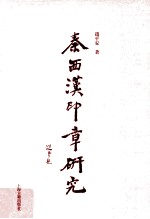 赵平安 著
秦西漢印章研究
上海古籍出版社